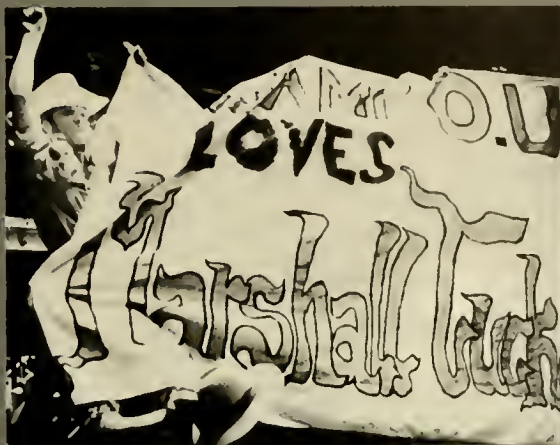 O.U
LOVES
Marshall Tuck